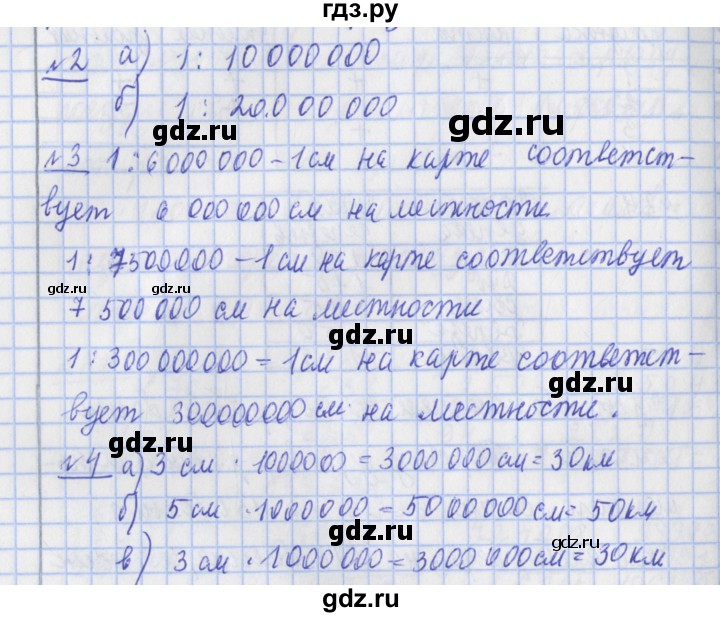 гдз.ру
№2 а) 1 : 10 000 000
б) 1 : 20.000 000
gdz.ru gdz.ru
№3 1 : 6 000 000 - 1 см на карте соответст-
вует 6 000 000 см на местности.
1 : 7500000 - 1 см на карте соответствует
gdz.ru gdz.ru gdz.ru
7 500 000 см на местности
gdz.ru
1 : 300 000 000 = 1 см на карте соответст-
gdz.ru
вует 300000000 см на местности.
gdz.ru
№4 а) 3 см · 1000000 = 3000 000 см = 30 км
б) 5 см · 1000000 = 5000000 см = 50 км
gdz.ru
в) 3 см · 1 000 000 = 3000 000 см = 30 км
gdz.ru
gdz.ru